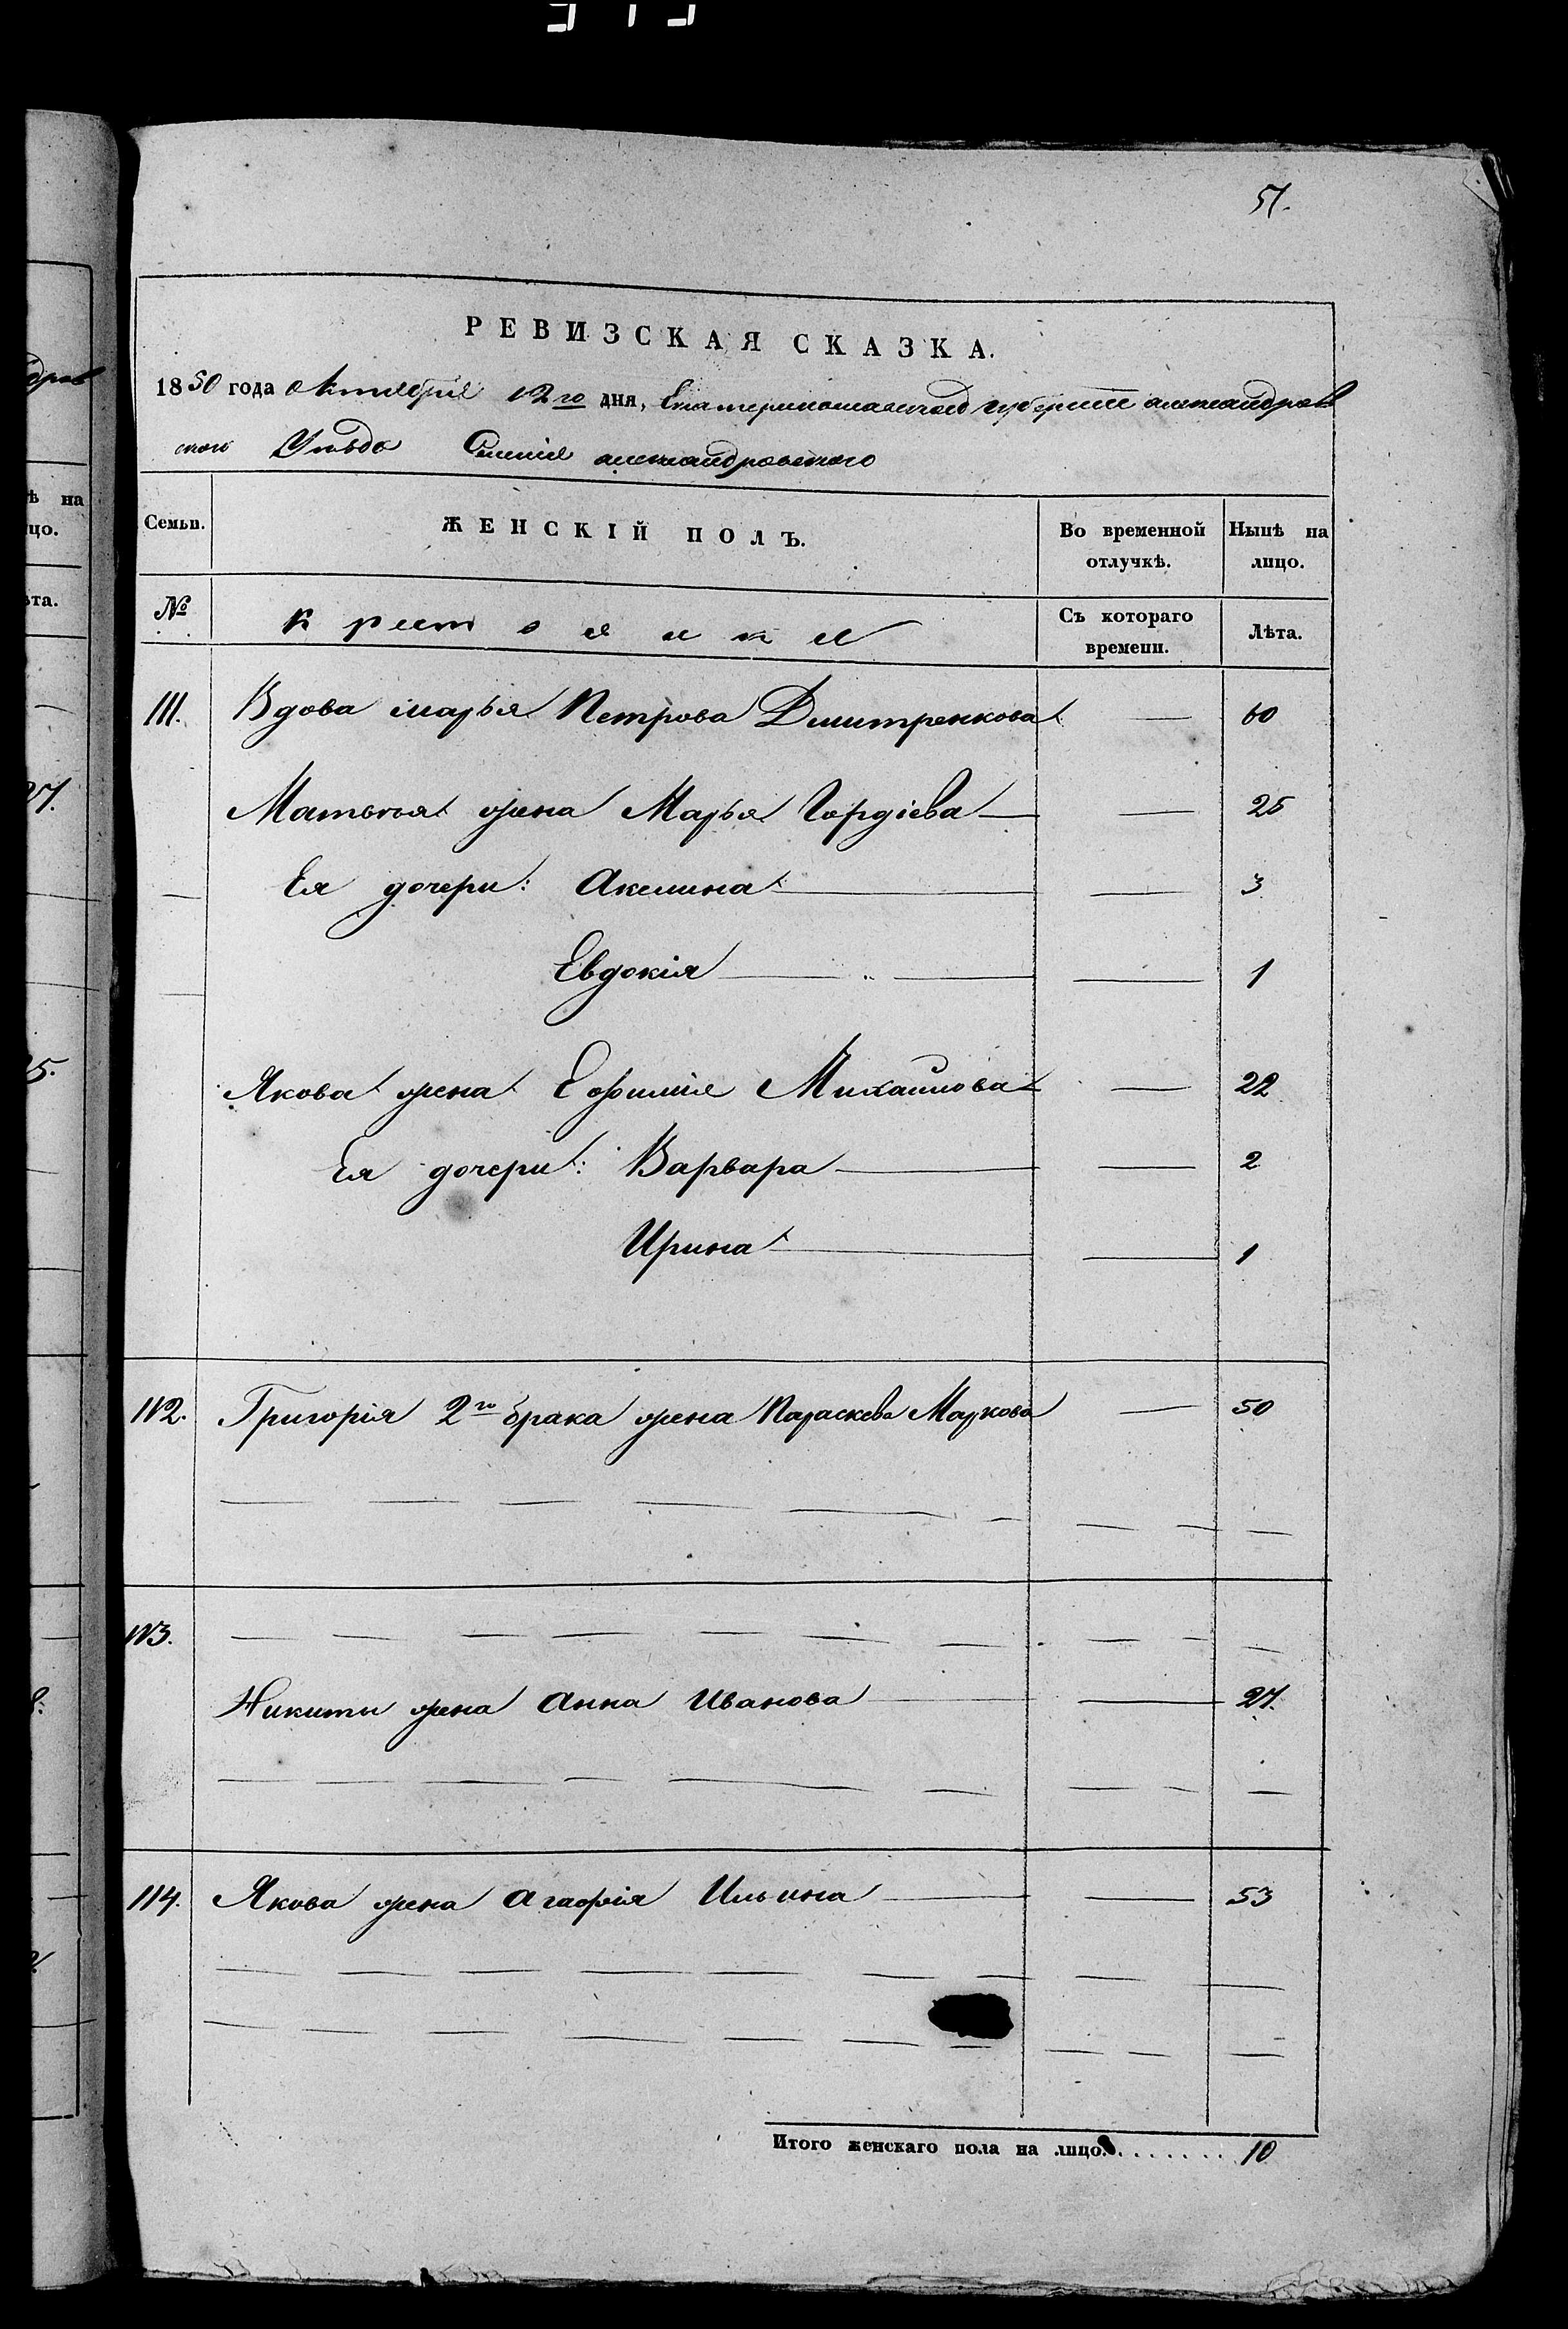 51.
РЕВИЗСКАЯ СКАЗКА.
1850 года Октября 12го дня, Екатеринославской губернии Александров
ского Уезда Имения Александровского
Семьи. ЖЕНСКІЙ ПОЛЪ. Во временной отлучкѣ. Нынѣ на лицо.
№ Крестьянки Съ котораго времени. Лѣта.
111. Вдова Марья Петрова Дмитренкова — 60
Матвея жена Марья Гордіева — 25
Ея дочери: Акилина — 3
Евдокія — 1
Якова жена Ефимія Михайлова — 22
Ея дочери: Варвара — 2
Ирина — 1
112. Григорія 2го брака жена Параскева Маркова — 50
113.
Никиты жена Анна Иванова — 27.
114. Якова жена Агафія Ильина — 53
Итого женскаго пола на лицо. 10